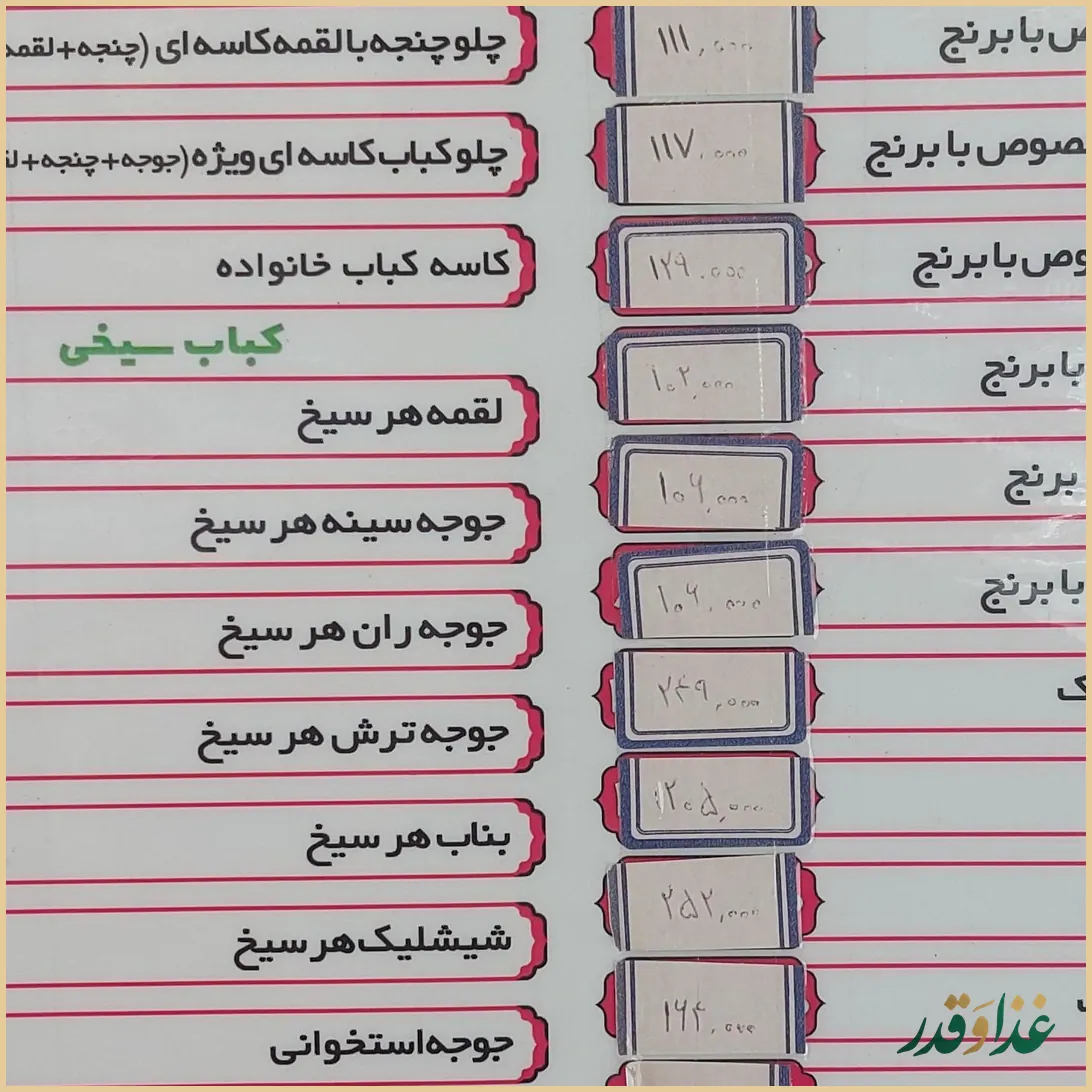 ص با برنج
۱۱۱,۰۰۰
چلو چنجه با لقمه کاسه ای (چنجه+لقمه
صوص با برنج
۱۱۷,۰۰۰
چلو کباب کاسه ای ویژه (جوجه+چنجه+لق
وص با برنج
۱۲۹,۰۰۰
کاسه کباب خانواده
کباب سیخی
با برنج
۱۰۲,۰۰۰
لقمه هر سیخ
برنج
۱۰۶,۰۰۰
جوجه سینه هر سیخ
با برنج
۱۰۶,۰۰۰
جوجه ران هر سیخ
ک
۲۴۹,۰۰۰
جوجه ترش هر سیخ
۲۰۵,۰۰۰
بناب هر سیخ
۲۵۲,۰۰۰
شیشلیک هر سیخ
۱۶۴,۰۰۰
جوجه استخوانی
غذا و قدر